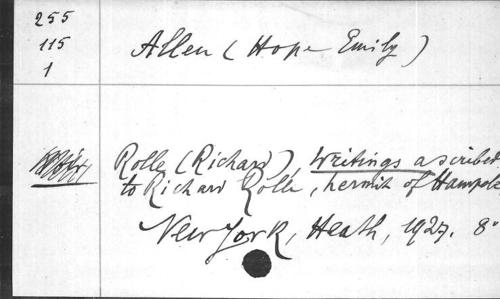 255
115
1
Allen (Hope Emily)
Rolle (Richard), Writings ascribed
to Richard Rolle, hermit of Hampole
New York, Heath, 1927. 8°